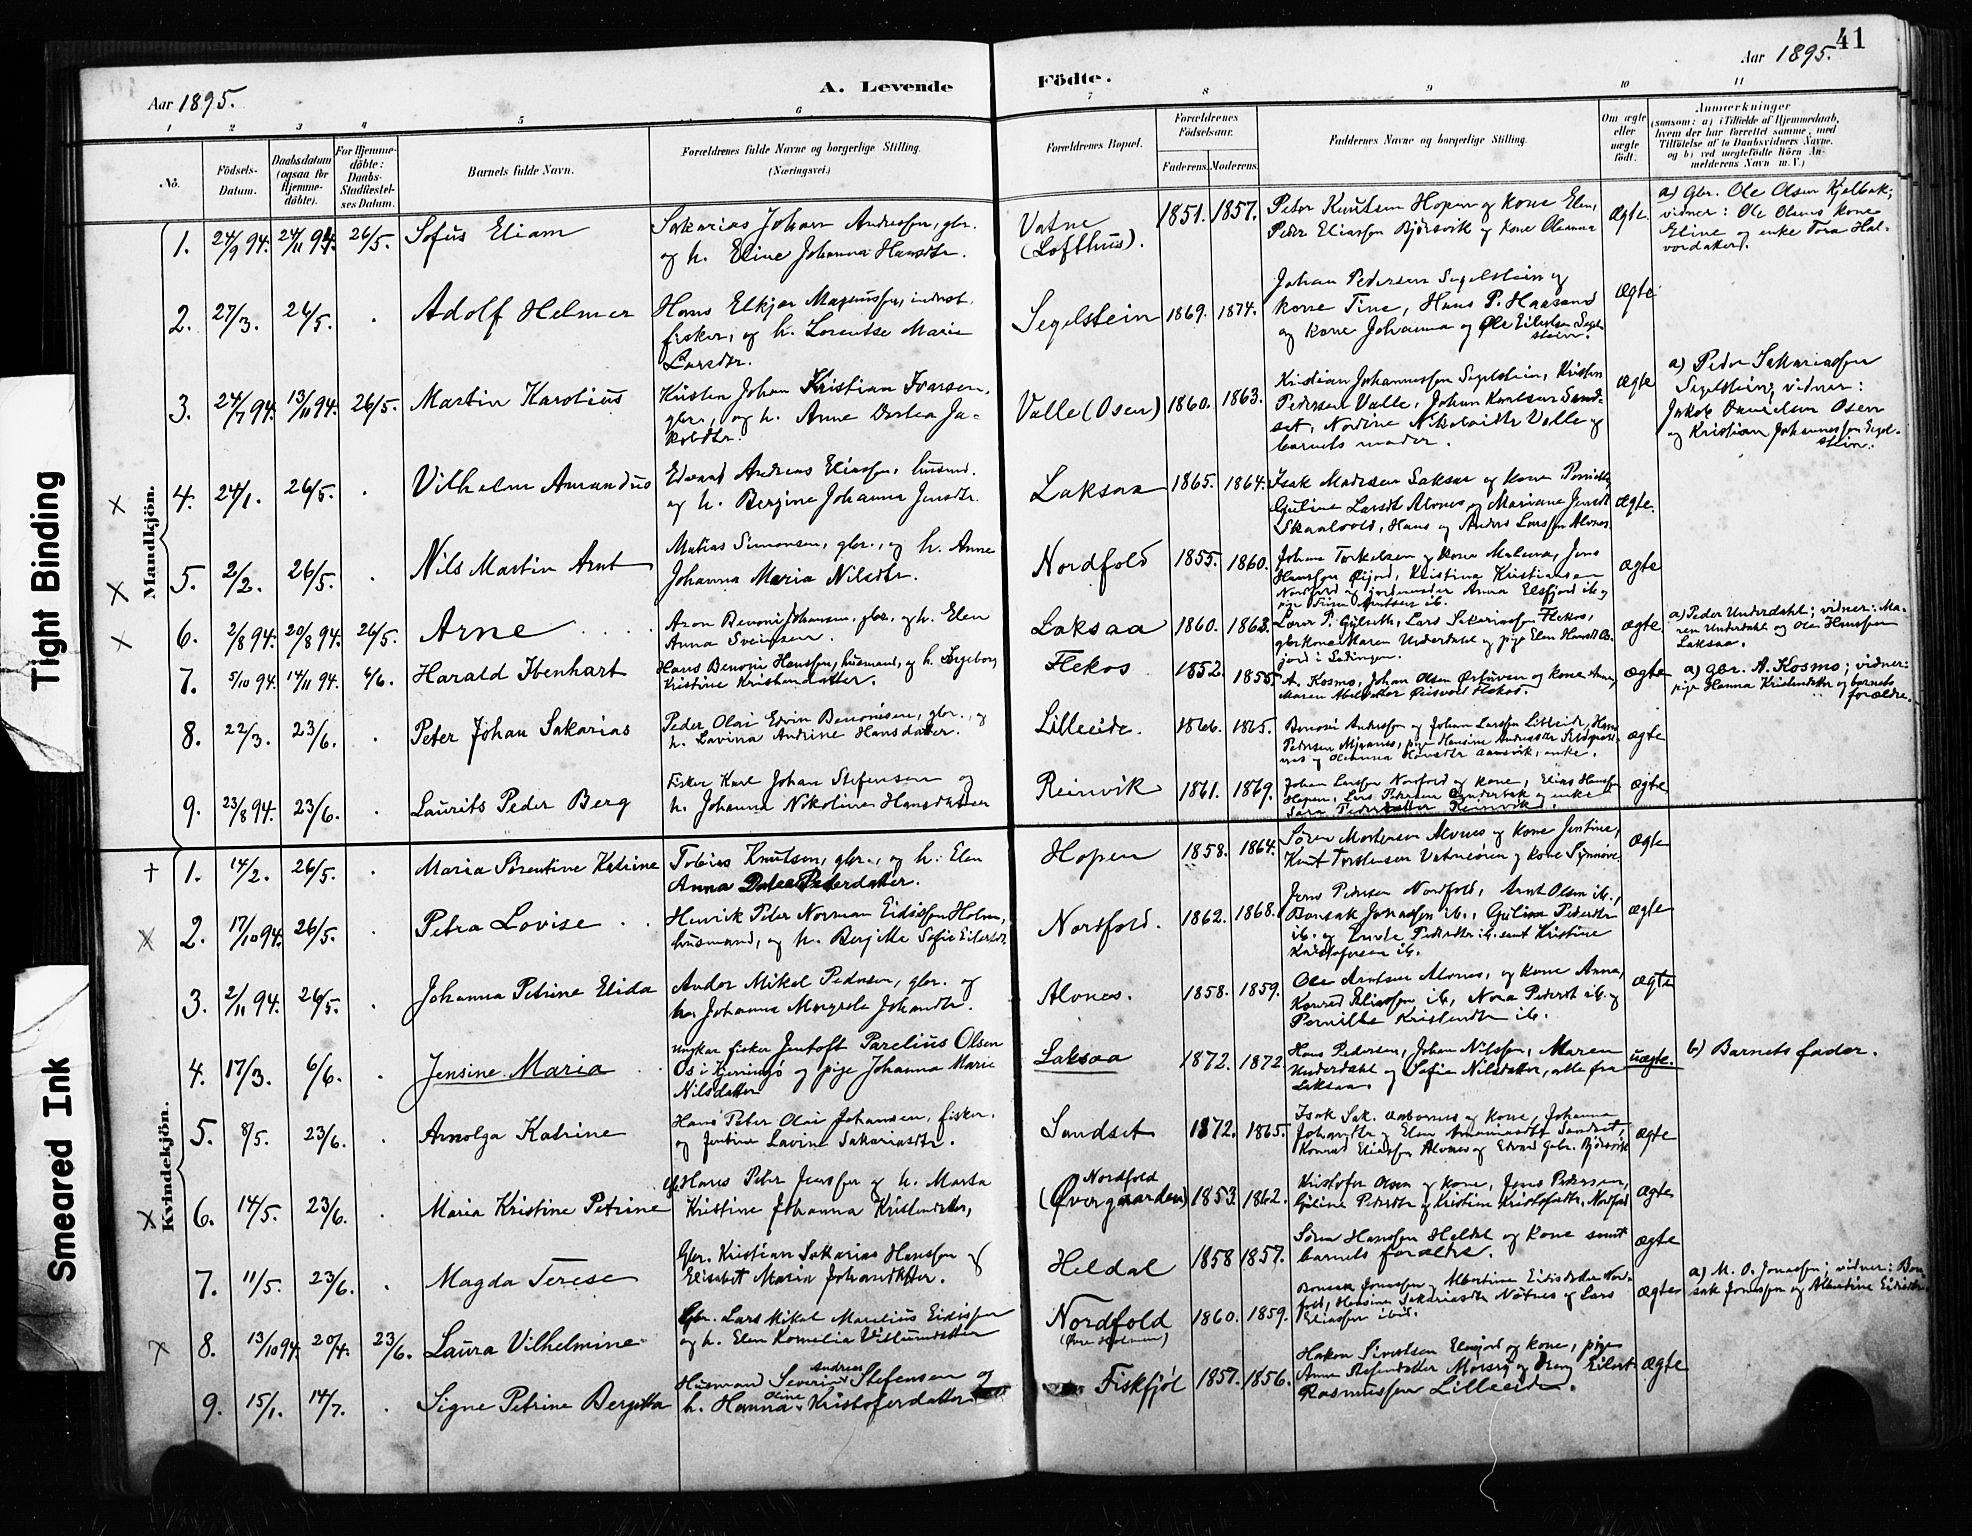 41
Aar 1895.
A. Levende
Födte.
Aar 1895.
1 2 3 4 5 6 7 8 9 10 11
No.
Födsels-
Datum.
Daabsdatum
(ogsaa for
Hjemme-
döbte).
For Hjemme-
döbte:
Daabs-
Stadfæstel-
ses Datum.
Barnets fulde Navn.
Forældrenes fulde Navne og borgerlige Stilling.
(Næringsvei.)
Forældrenes Bopæl.
Forældrenes
Födselsaar.
Faderens.
Moderens.
Faddernes Navne og borgerlige Stilling.
Om ægte
eller
uægte
födt.
Anmærkninger
(saasom: a) i Tilfælde af Hjemmedaab,
hvem der har forrettet samme, med
Tilföielse af to Daabsvidners Navne,
og b) ved uægtefödte Börn An-
melderens Navn m. V.)
Mandkjön.
1. 24/9 94. 24/11 94. 26/5. Sofus Eliam
Sakarias Johan Andreassen, gbr.
og h. Eline Johanna Hansdtr.
Vatne
(Lofthus).
1851. 1857.
Peter Knutsen Hopen og kone Elen,
Peder Eliassen Bjørsvik og kone Oleanna
Ægte
a) Gbr. Ole Olsen Kjelbak;
vidner: Ole Olsens kone
Eline og enke Tora Hal-
vordatter.
2. 27/3. 26/5. . Adolf Helmer
Hans Elkjær Magnussen, inderst,
fisker, og h. Lorentse Marie
Larsdtr.
Segelstein
1869. 1874.
Johan Pedersen Segelstein og
kone Tine, Hans P. Haasand
og kone Johanna og Ole Eilertsen Segel-
stein.
Ægte
3. 24/7 94. 13/11 94. 26/5. Martin Karolius
Kristen Johan Kristian Ivarsen,
gbr., og h. Anne Dortea Ja-
kobdtr.
Valle (Osen)
1860. 1863.
Kristian Johannessen Segelstein, Kristen
Pedersen Valle, Johan Karlsen Sand-
set, Nordine Nikolaidtr Valle og
barnets moder.
Ægte
a) Peder Sakariassen
Segelstein; vidner:
Jakob Danielsen Osen
og Kristian Johannessen Segel-
stein.
4. 24/1. 26/5. . Vilhelm Amandus
Edvard Andreas Eliassen, husmd.
og h. Bergine Johanna Jensdtr.
Laksaa
1865. 1864.
Isak Madssen Laksaa og kone Pernille,
Guline Larsdt Alvnes og Mariane Jensdt
Skaalvold, Hans og Anders Larssen Alvnes
Ægte.
5. 2/2. 26/5. . Nils Martin Arnt
Matias Simonsen, gbr., og h. Anne
Johanna Maria Nilsdtr.
Nordfold
1855. 1860.
Johan Torkelsen og kone Malena, Jens
Hanssen Øijord, Kristina Kristiansen
Nordfold og jordemoder Anna Elvfjord ib. og
pige Trine Arntsen ib.
Ægte
6. 2/8 94. 20/8 94. 26/5. Arne . . . .
Aron Benoni Johansen, gbr., og h. Elen
Anna Sveinsen.
Laksaa
1860. 1868.
Lars Sakariassen Flekos,
gbrkone Maren Underdahl og pige Elen Hansdt
jord i Lødingen.
Ægte
a) Peder Underdahl; vidner: Ma-
ren Underdahl og Ole Hanssen
Laksaa.
7. 5/10 94. 14/11 94. 6/6. Harald Ibenhart
Hans Benoni Hanssen, husmand, og h. Ingeborg
Kristine Kristendatter.
Flekos
1852. 1855.
A. Kosmo, Johan Olsen Ørtuven og kone Anne,
Maren Abeldatter Flekos.
Ægte
a) Gbr. A. Kosmo; vidner:
pige Hanna Kristendatter og barnets
forældre.
8. 22/3. 23/6. . Peter Johan Sakarias
Peder Olai Edvin Benonisen, gbr., og
h. Lavina Andrine Hansdatter.
Lilleeide.
1866. 1865.
Benoni Andersen og Johan Larssen Lilleeide, Hans
Pedersen Mjvanes, pige Hansine Andreasdtr
nes og Oleanna Hansdtr Aamsvik, enke.
Ægte
9. 23/8 94. 23/6. . Laurits Peder Berg
Fisker Karl Johan Stefensen og
h. Johanna Nikoline Hansdatter
Reinvik
1861. 1869.
Johan Larssen Nordfold og kone, Elias Hanssen
Hopen, Lars Petersen og enke
Sara Pedersdatter Reinvik.
Ægte
Kvindekjön.
1. 14/2. 26/5. . Maria Sørentine Katrine
Tobias Knutsen, gbr., og h. Elen
Anna Dortea Pedersdatter.
Hopen
1858. 1864.
Søren Mortensen Alvnes og kone Jentine,
Knut Torstensen Vatneøren og kone Synnøve
Ægte
2. 17/10 94. 26/5. . Petra Lovise . .
Henrik Peter Norman Eidissen Holm,
husmand, og h. Bergitte Sofie Eilertsdt.
Nordfold.
1862. 1868.
Jens Pedersen Nordfold, Arnt Olsen ib.,
Bonsak Jonassen ib., Guline Pedersdtr
ib. og Pedersdtr ib. samt Kristine
Kristofersen ib.
Ægte
3. 2/11 94. 26/5. . Johanna Petrine Elida
Andor Mikal Pedersen, gbr. og
h. Johanna Margrete Johansdtr.
Alvnes.
1858. 1859.
Ole Arntsen Alvnes, og kone Anna,
Konrad Eliassen ib., Nora Pedersdt ib. og
Pernille Kristensdtr ib.
Ægte
4. 17/3. 6/6. . Jensine Maria
Ungkar fisker Jentoft Parelius Olsen
Os i Kjerringø og pige Johanna Marie
Nilsdatter
Laksaa
1872. 1872
Hans Pedersen, Johan Nilssen, Maren
Underdahl og Sofie Nilsdatter, alle fra
Laksaa.
uægte.
b) Barnets fader.
5. 8/5. 23/6. . Arnolga Katrine
Hans Peter Olai Johansen, fisker,
og Jentine Lavine Sakariasdtr.
Sandset
1872. 1865.
Isak Sak. og kone, Johanna
Johansdtr og Elen Sandset,
Konrad Eliassen Alvnes og Edvard Gabr. Bjørsvik
Ægte
6. 14/5. 23/6. . Maria Kristine Petrine
Gbr. Hans Peter Jenssen og h. Marta
Kristine Johanna Kristendatter,
Nordfold
(Øvergaarden)
1853. 1862.
Kristofer Olsen og kone, Jens Pedersen,
Guline Pedersdtr og Kristine Kristofersdtr, Nordfold
Ægte
7. 11/5. 23/6. . Magda Terese
Gbr. Kristian Sakarias Hanssen og
Elisabet Maria Johansdatter.
Heldal
1858 1857.
Søren Hanssen Heldal og kone samt
barnets forældre.
Ægte
8. 13/10 94. 20/4. 23/6. Laura Vilhelmine
Gbr. Lars Mikal Marelius Eidissen
og h. Elen Kornelia Villumsdatter
Nordfold
(Øvre Holmen)
1860. 1859.
Bonsak Jonassen, Albertine Eidisdatter Nord-
fold, Hansine Sakariasdtr Nøtnes og Lars
Eliassen ibid.
Ægte
a) M. O. Jonassen; vidner: Bon-
sak Jonassen og Albertine Eidisdtr.
9. 15/1. 14/7. . Signe Petrine Bergitta
Husmand Severin Andreas Stefensen og
h. Hanna Oline Kristofersdatter
Fiskfjøl
1857. 1856.
Hakon Sivertsen Elvfjord og kone, pige
Anna Stefensdatter Morsvig og Eilert
Rasmussen Lilleeide.
Ægte
Tight Binding
Smeared Ink